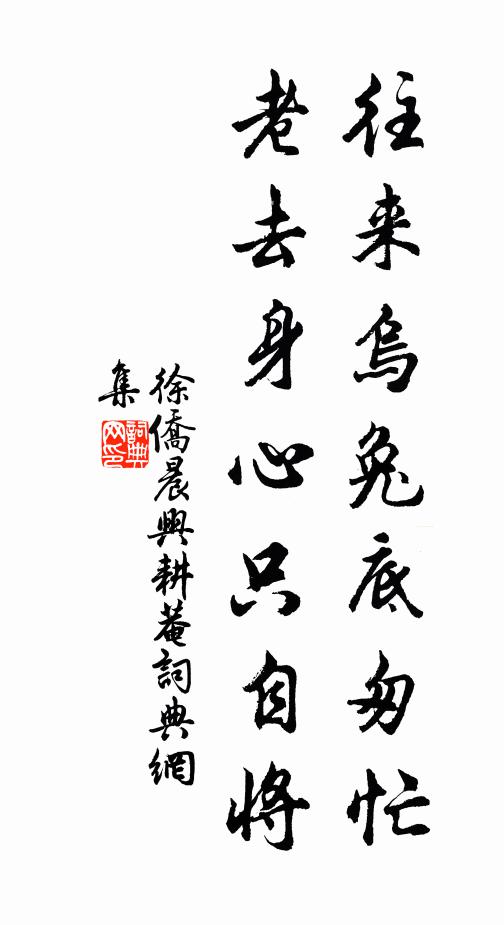 往来烏兔底匆忙
老去身心只自將
徐僑晨興耕菴詞典網
集
詞典
网印